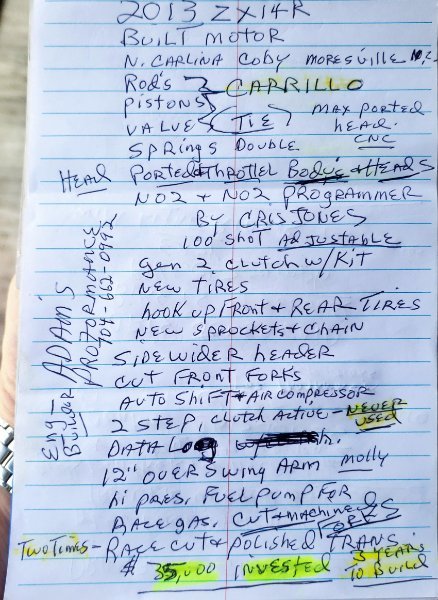 2013 ZX14R
BUILT MOTOR
N. CARLINA COBY MORESVILLE N.C.
ROD'S CARRILLO
PISTONS
VALVES TIE MAX PORTED
HEAD.
SPRINGS DOUBLE CNC
HEAD PORTED THROTTEL BODYE + HEADS
NO2 + NO2 PROGRAMMER
BY CRIS JONES
100 SHOT ADJUSTABLE
GEN 2 CLUTCH W/KIT
NEW TIRES
HOOK UP FRONT + REAR TIRES
NEW SPROCKETS + CHAIN
SIDEWIDER HEADER
CUT FRONT FORKS
AUTO SHIFT + AIR COMPRESSOR
2 STEP, CLUTCH ACTIVE - NEVER
USED
DATA LOG
12" OVER SWING ARM MOLLY
HI PRES. FUEL PUMP FOR
RACE GAS. CUT + MACHINED
TWO TIMES - RACE CUT + POLISHED TRANS.
$ 35,000 INVESTED 3 YEARS
TO BUILD
ENG. BUILDER
ADAM'S
PROFORMANCE
704-662-0992